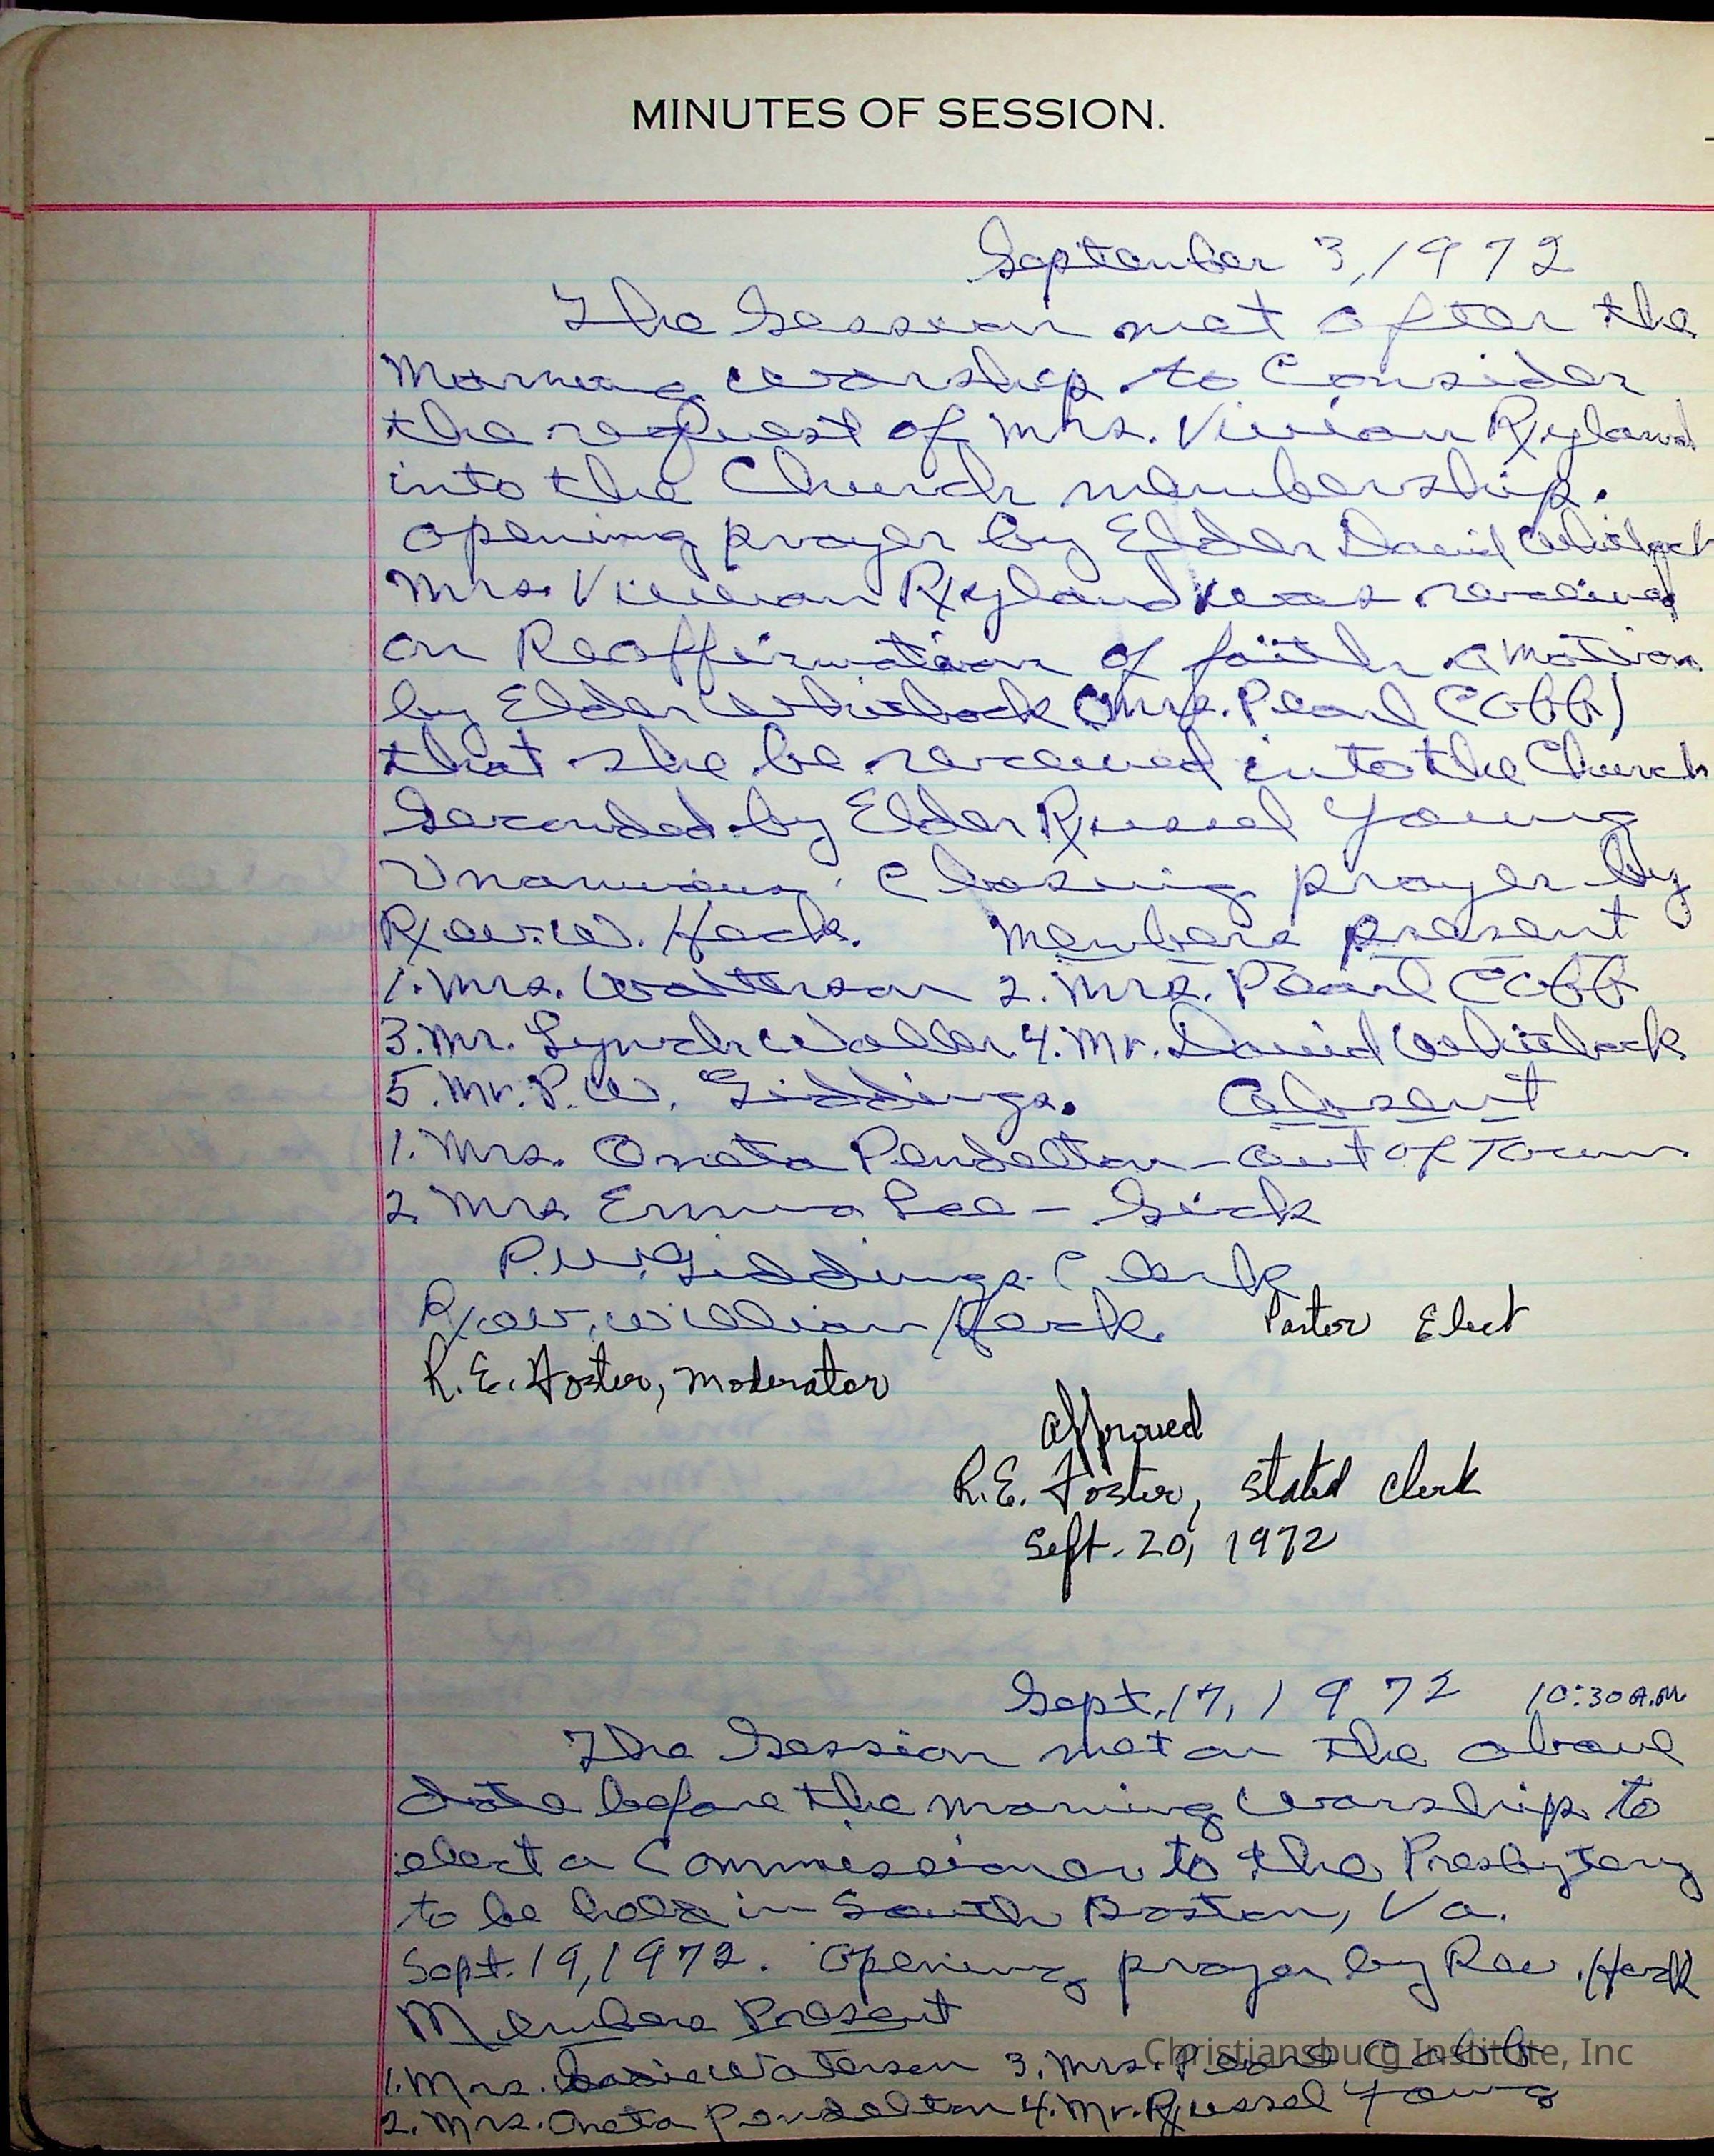 MINUTES OF SESSION.
September 3, 1972
The Session met after the
Morning worship to Consider
the request of Mrs. Vivian Ryland
into the Church membership.
Opening prayer by Elder David Whitlock
Mrs. Vivian Ryland was received
on Reaffirmation of faith a motion
by Elder Whitlock (Mrs. Pearl Cobb)
that she be received into the Church
Seconded by Elder Russel Young
Unanimous. Closing prayer by
Rev. W. Hack. Members present
1. Mrs. Watterson 2. Mrs. Pearl Cobb
3. Mr. Lynch Waller 4. Mr. David Whitlock
5. Mr. P.W. Giddings. Absent
1. Mrs. Oneta Pendelton - out of Town
2 Mrs Emma Lee - Sick
P.W. Giddings. Clerk
Rev. William Hack. Pastor Elect
R.E. Foster, Moderator
Approved
R.E. Foster, Stated Clerk
Sept. 20, 1972
Sept. 17, 1972 10:30 A.M.
The Session met on the above
date before the morning worship to
elect a Commissioner to the Presbytery
to be held in South Boston, Va.
Sept. 19, 1972. Opening prayer by Rev. Hack
Members Present
1. Mrs. Watersen 3. Mrs. Pearl Cobb
2. Mrs. Oneta Pendelton 4. Mr. Russel Young
Christiansburg Institute, Inc